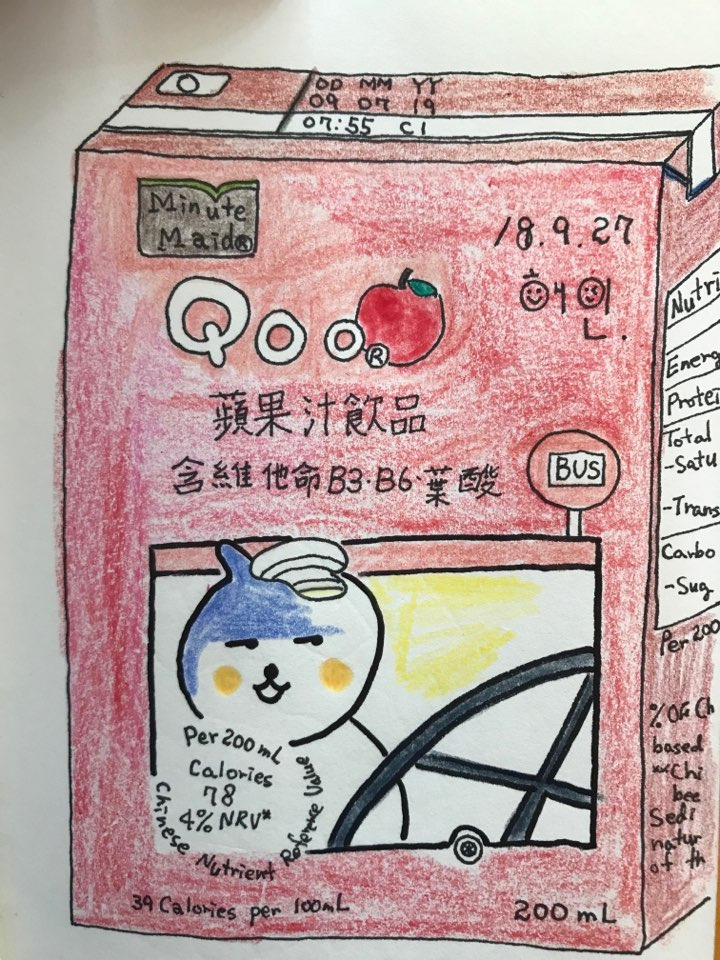 DD MM YY
09 07 19
07:55 C1
Minute
Maid®
18.9.27
Qoo®
蘋果汁飲品
含維他命B3·B6·葉酸
BUS
Per 200 mL
Calories
78
4% NRV*
Chinese Nutrient Reference Value
39 Calories per 100mL
200 mL
Nutri
Energ
Protei
Total
-Satu
-Trans
Carbo
-Sug
Per 200
% Of Ch
based
**Chi
bee
Sedi
natur
of th